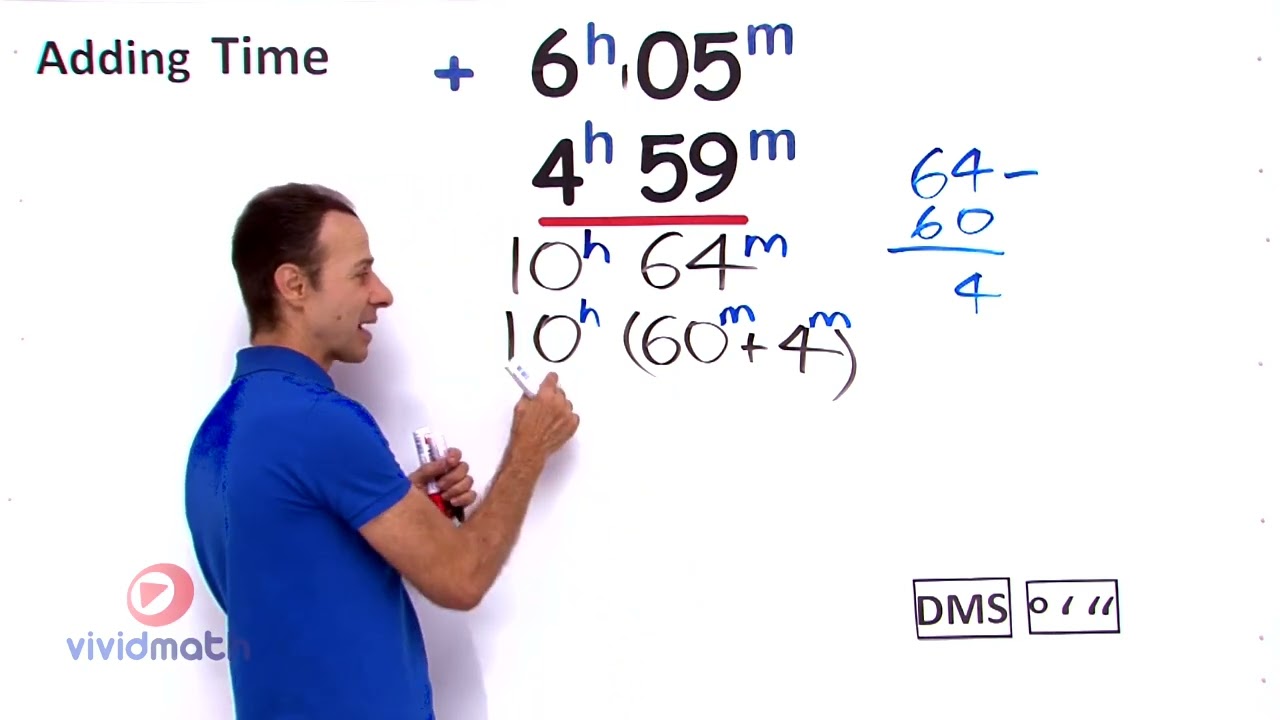 Adding Time
+ 6h 05m
4h 59m
10h 64m
10h (60m + 4m)
64 –
60
4
DMS
° ′ ″
vividmath